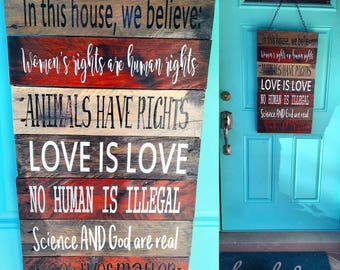 In this house, we believe:
Women's rights are human rights
ANIMALS HAVE RIGHTS
LOVE IS LOVE
NO HUMAN IS ILLEGAL
Science AND God are real
In this house, we believe:
Women's rights are human rights
ANIMALS HAVE RIGHTS
LOVE IS LOVE
NO HUMAN IS ILLEGAL
Science AND God are real